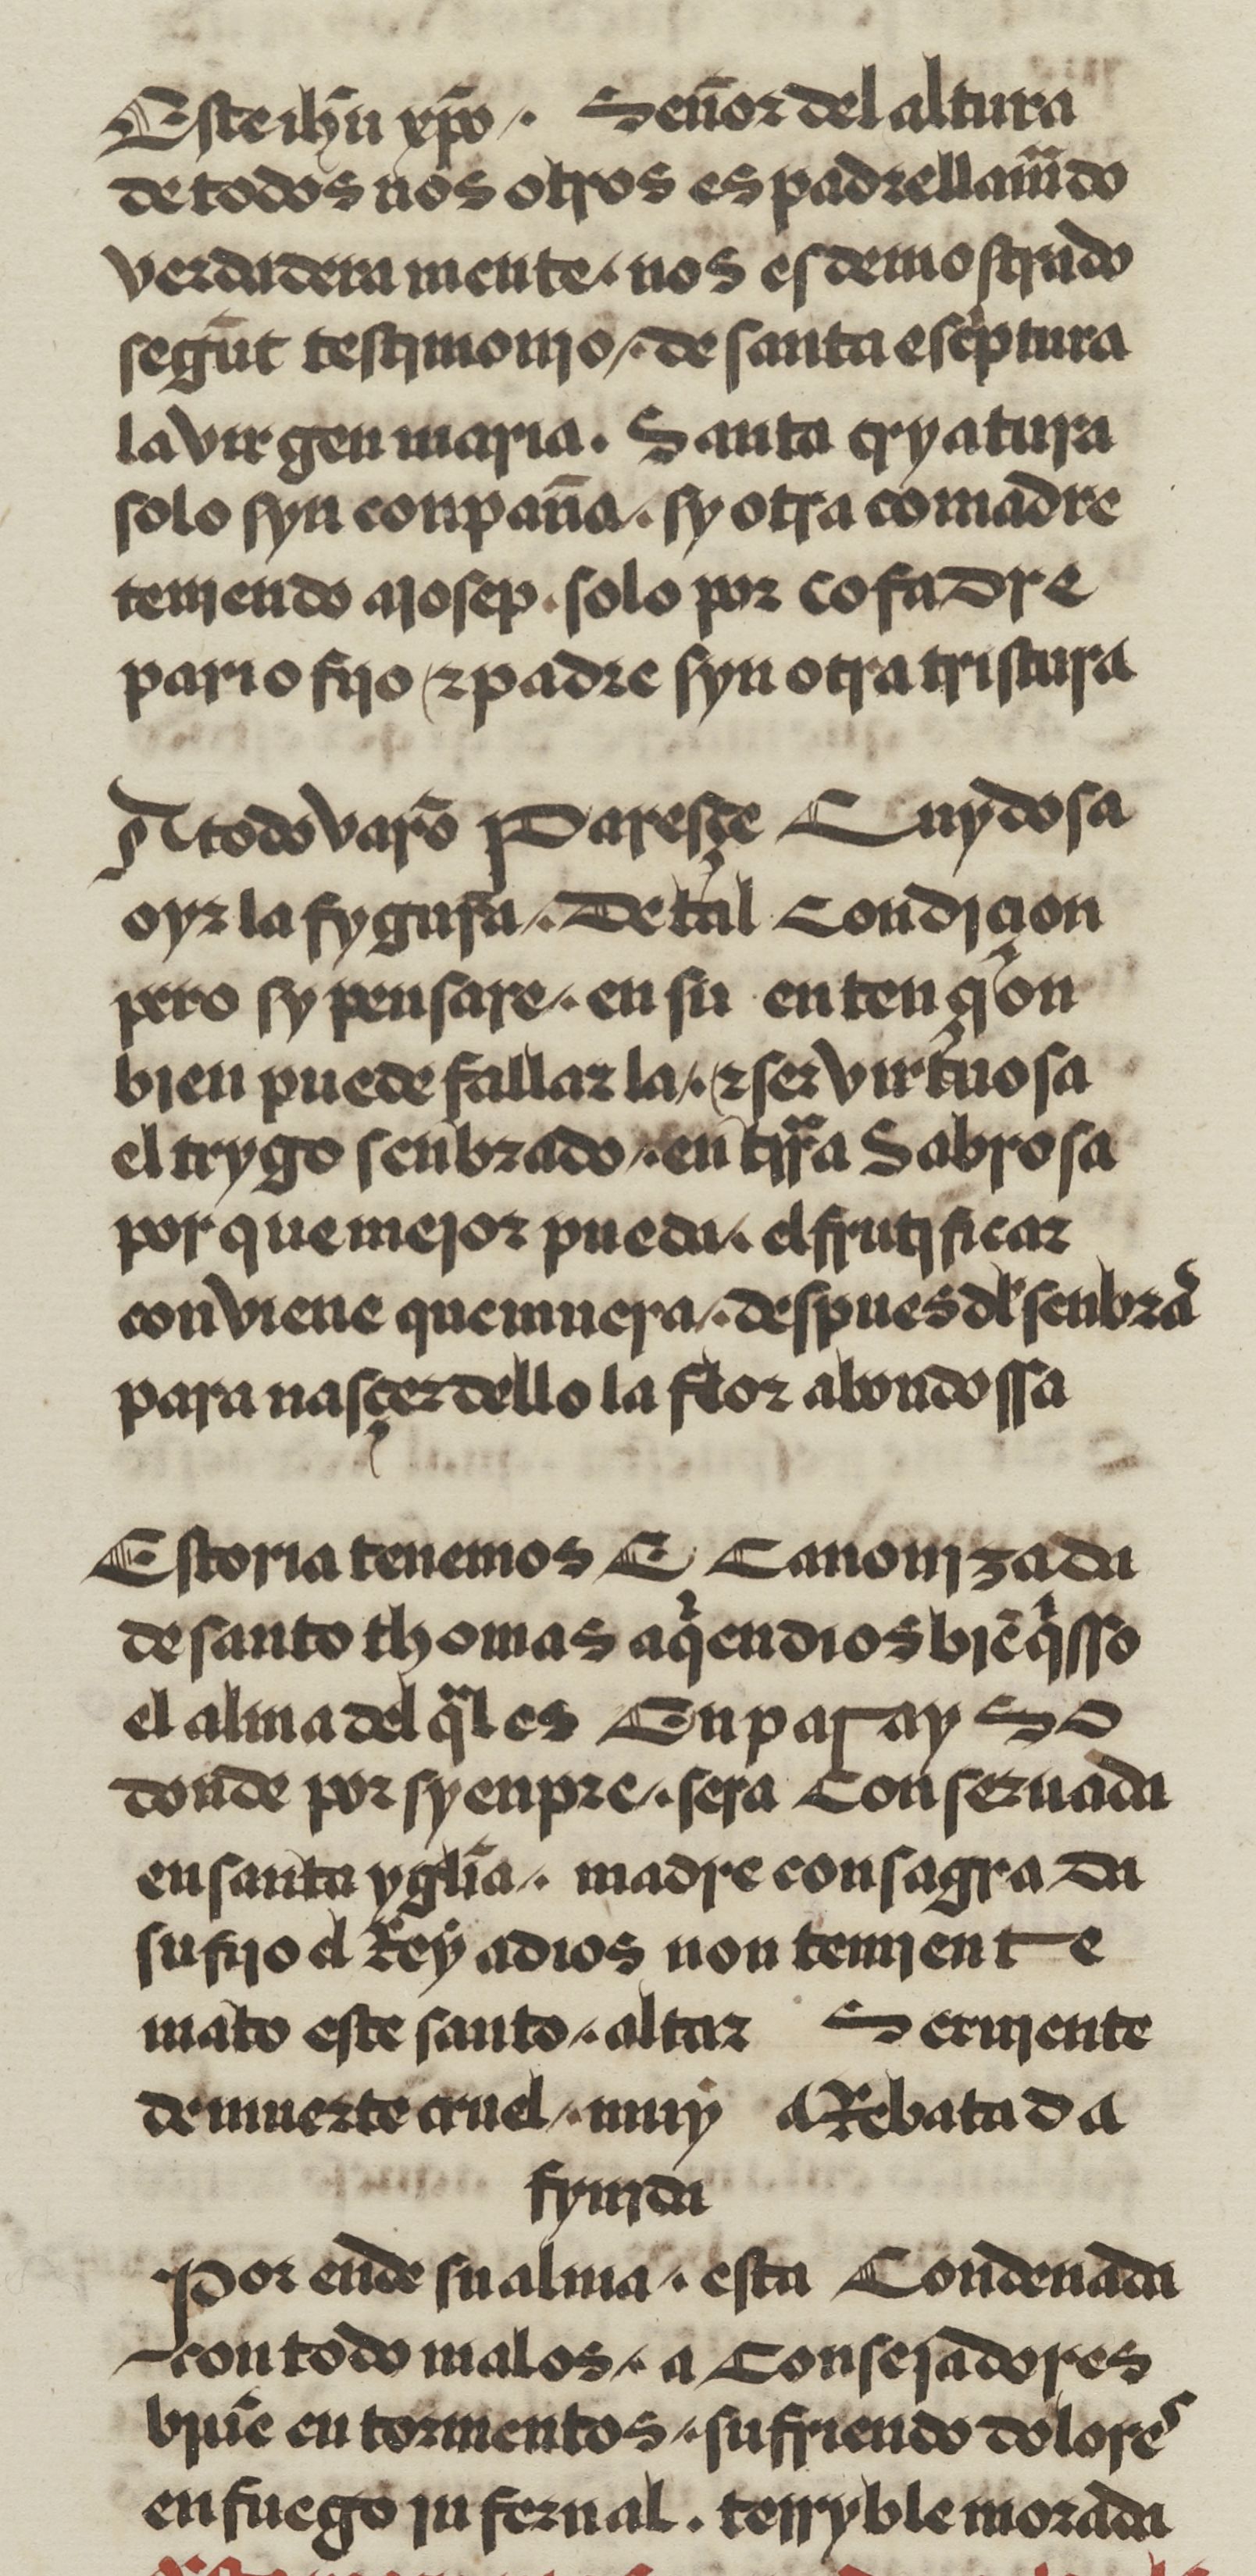 Este ihũ xp̃o /. Señor del altura
de todos nos otros es padre llamãdo
verdadera mente /. nos es demostrado
segũt testimonio /. de santa escˀptura
la virgen maria . Santa cryatura
solo syn conpañia /. sy otra comadre
teniendo a josep . solo por cofadre
pario fijo ⁊ padre syn otra tristura
A todo varõ Paresçe Cuydosa
oyr la fygura /. De tal Condiçion
pero sy pensare /. en su entençˀon
bien puede fallar la /. ⁊ ser virtuosa
el trygo senbrado /. en tirra Sabrosa
por que mejor pueda /. el frutificar
conviene que muera /. despues dl senbrar
para nasçer dello la flor abondossa
Estoria tenemos E Canonizada
de santo thomas a qˀen dios biẽ qˀsso
el alma del qual es En parayso
donde por syenpre /. sera Conseruada
en santa yglĩa /. madre consagrada
su fijo el Rey a dios non temiente
mato este santo /. altar Seruiente
de muerte cruel /. muy aRebatada
fynida
Por ende su alma /. esta Condenada
con todo malos /. a Consejadores
biuẽ en tormentos /. sufriendo dolores
en fuego jnfernal . terryble morada